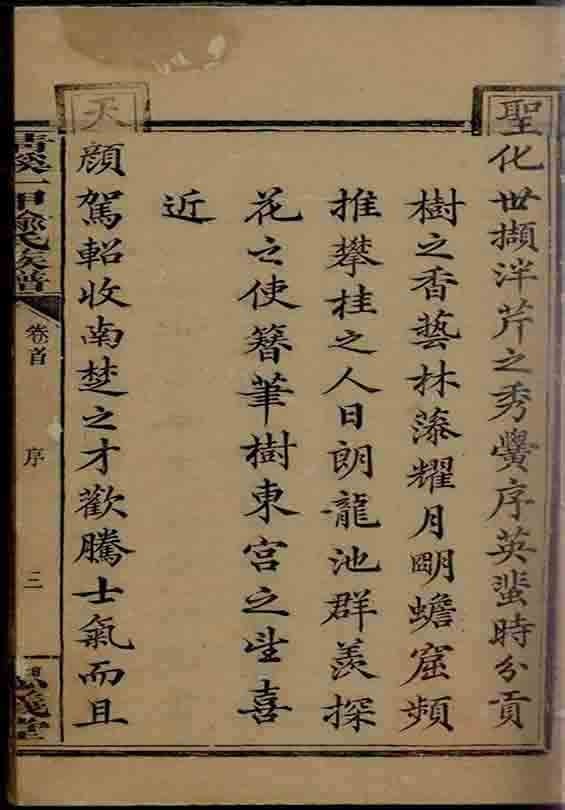 聖化世擷泮芹之秀黌序英蜚時分貢
樹之香藝林藻耀月朙蟾窟頻
推攀桂之人日朗龍池群羨探
花之使簪筆樹東宮之望喜
近
天顏駕軺收南楚之才歡騰士氣而且
清溪一甲喻氏族譜
卷首
序
三
義堂